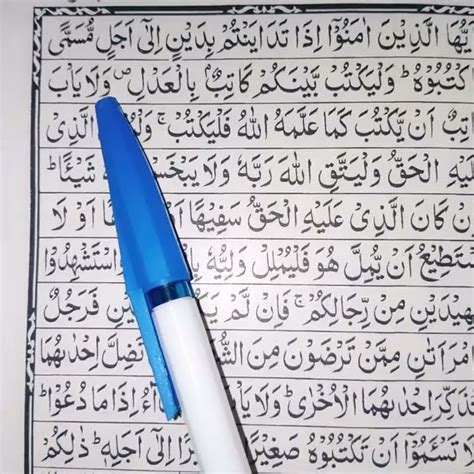 يُّهَا الَّذِيْنَ اٰمَنُوْۤا اِذَا تَدَايَنْتُمْ بِدَيْنٍ اِلٰۤى اَجَلٍ مُّسَمًّى
كْتُبُوْهُ ؕ وَلْيَكْتُبْ بَّيْنَكُمْ كَاتِبٌۢ بِالْعَدْلِ ۪ وَلَا يَاْبَ
تِبٌ اَنْ يَّكْتُبَ كَمَا عَلَّمَهُ اللّٰهُ فَلْيَكْتُبْ ۚ الَّذِيْ
يْهِ الْحَقُّ وَلْيَتَّقِ اللّٰهَ رَبَّهٗ وَلَا يَبْخَسْ شَيْـًٔا ؕ
نْ كَانَ الَّذِيْ عَلَيْهِ الْحَقُّ سَفِيْهًا اَوْ لَا
سْتَطِيْعُ اَنْ يُّمِلَّ هُوَ فَلْيُمْلِلْ وَلِيُّهٗ اسْتَشْهِدُوْا
هِيْدَيْنِ مِنْ رِّجَالِكُمْ ۚ فَاِنْ لَّمْ يَ يْنِ فَرَجُلٌ
مْرَاَتٰنِ مِمَّنْ تَرْضَوْنَ مِنَ الشُّ تَضِلَّ اِحْدٰىهُمَا
ذَكِّرَ اِحْدٰىهُمَا الْاُخْرٰى ؕ وَلَا يَاْ آءُ اِذَا مَا دُعُوْا ؕ
تَسْـَٔمُوْۤا اَنْ تَكْتُبُوْهُ صَغِيْرًا رًا اِلٰۤى اَجَلِهٖ ؕ ذٰلِكُمْ